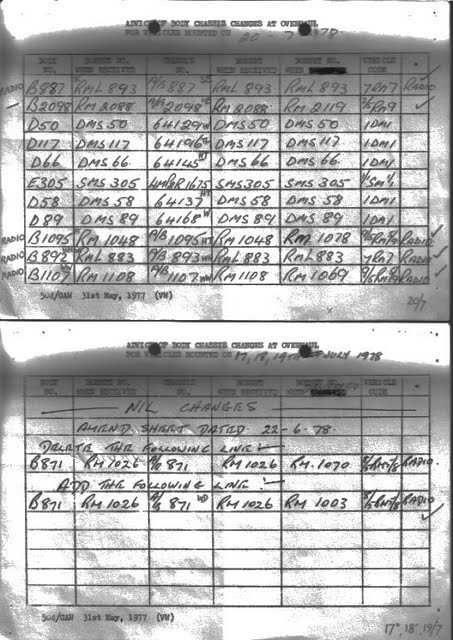 ADVICE OF BODY CHASSIS CHANGES AT OVERHAUL
FOR VEHICLES MOUNTED ON 20 - 7 - 1978.
BODY BONNET NO. CHASSIS BONNET BONNET NO. VEHICLE
WHEN RECEIVED WHEN RECEIVED WHEN CODE
RADIO B887 RML 893 A/B 887 RML 893 RML 893 7RM7 RADIO ✓
B2098 RM 2088 A/B 2098 RM 2088 RM 2119 RM9 ✓
D50 DMS 50 64129 DMS 50 DMS 50 1DM1
D117 DMS 117 64196 DMS 117 DMS 117 1DM1
D66 DMS 66 64145 DMS 66 DMS 66 1DM1
E305 SMS 305 1675 SMS 305 SMS 305 1SM1
D58 DMS 58 64137 DMS 58 DMS 58 1DM1
D89 DMS 89 64168 DMS 89 DMS 89 1DM1
RADIO B1095 RM 1048 A/B 1095 RM 1048 RM 1078 RADIO ✓
RADIO B892 RML 883 A/B 893 RML 883 RML 883 7RM7 RADIO ✓
RADIO B1107 RM 1108 A/B 1107 RM 1108 RM 1069 RADIO ✓
504/GAW 31st May, 1977 (VW)
20/7
ADVICE OF BODY CHASSIS CHANGES AT OVERHAUL
FOR VEHICLES MOUNTED ON 17, 18, 19TH JULY 1978
BODY BONNET NO. CHASSIS BONNET BONNET NO. VEHICLE
WHEN RECEIVED WHEN RECEIVED WHEN CODE
NIL CHANGES
AMEND SHEET DATED 22-6-78.
DELETE THE FOLLOWING LINE
B871 RM 1026 A/B 871 RM 1026 RM 1070 RADIO
ADD THE FOLLOWING LINE
B871 RM 1026 A/B 871 RM 1026 RM 1003 RADIO
✓
504/GAW 31st May, 1977 (VW)
17 18 19/7